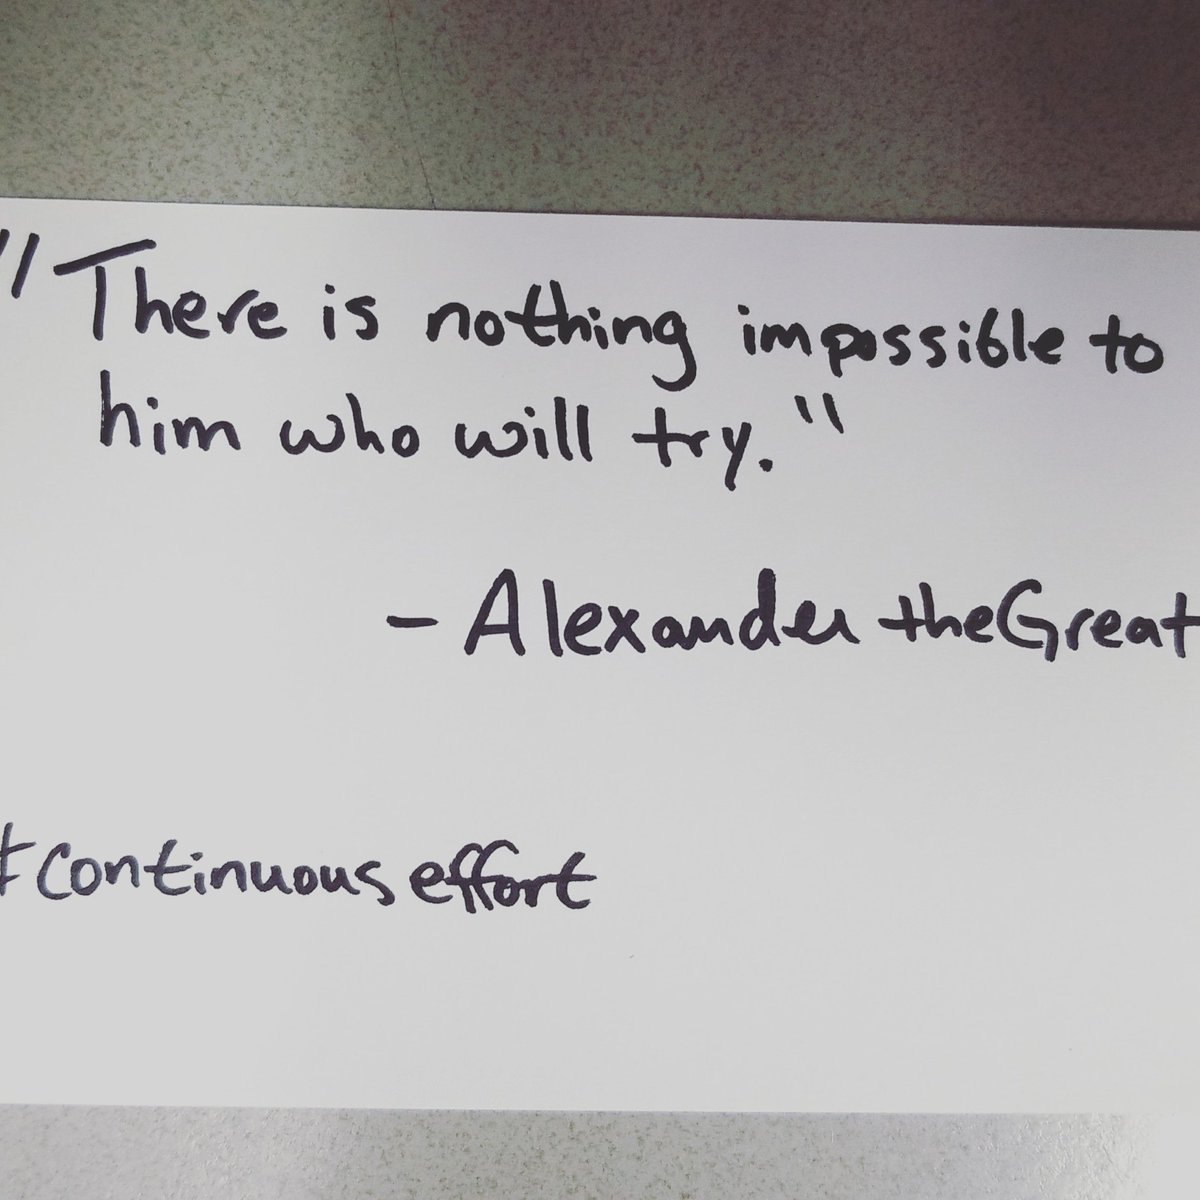 "There is nothing impossible to
him who will try."
- Alexander the Great
#continuous effort